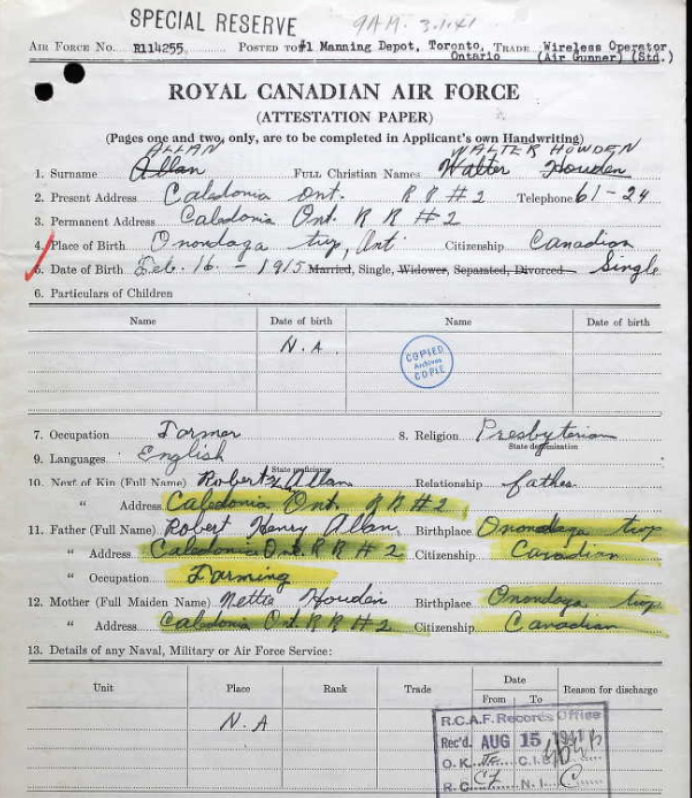 SPECIAL RESERVE 9AM. 3.1.41
AIR FORCE No. R114255 POSTED TO #1 Manning Depot, Toronto, Ontario TRADE Wireless Operator (Air Gunner) (Std.)
ROYAL CANADIAN AIR FORCE
(ATTESTATION PAPER)
(Pages one and two, only, are to be completed in Applicant's own Handwriting)
ALLAN WALTER HOWDEN
1. Surname Allan FULL Christian Names Walter Howden
2. Present Address Caledonia Ont. R R #2 Telephone 61-24
3. Permanent Address Caledonia Ont. R R #2
4. Place of Birth Onondaga twp, Ont Citizenship Canadian
5. Date of Birth Feb. 16 - 1915 Married, Single, Widower, Separated, Divorced Single
6. Particulars of Children
Name Date of birth Name Date of birth
N.A.
COPIED
Archives
COPIE
7. Occupation Farmer 8. Religion Presbyterian
State denomination
9. Languages English
State proficiency
10. Next of Kin (Full Name) Robert Allan Relationship father
" Address Caledonia Ont. R R #2
11. Father (Full Name) Robert Henry Allan Birthplace Onondaga twp
" Address Caledonia Ont. R R #2 Citizenship Canadian
" Occupation Farming
12. Mother (Full Maiden Name) Nettie Howden Birthplace Onondaga twp
" Address Caledonia Ont. R R #2 Citizenship Canadian
13. Details of any Naval, Military or Air Force Service:
Unit Place Rank Trade Date From To Reason for discharge
N.A
R.C.A.F. Records Office
Rec'd. AUG 15 1941
O.K. C.I.B.
R.C. N.I. C